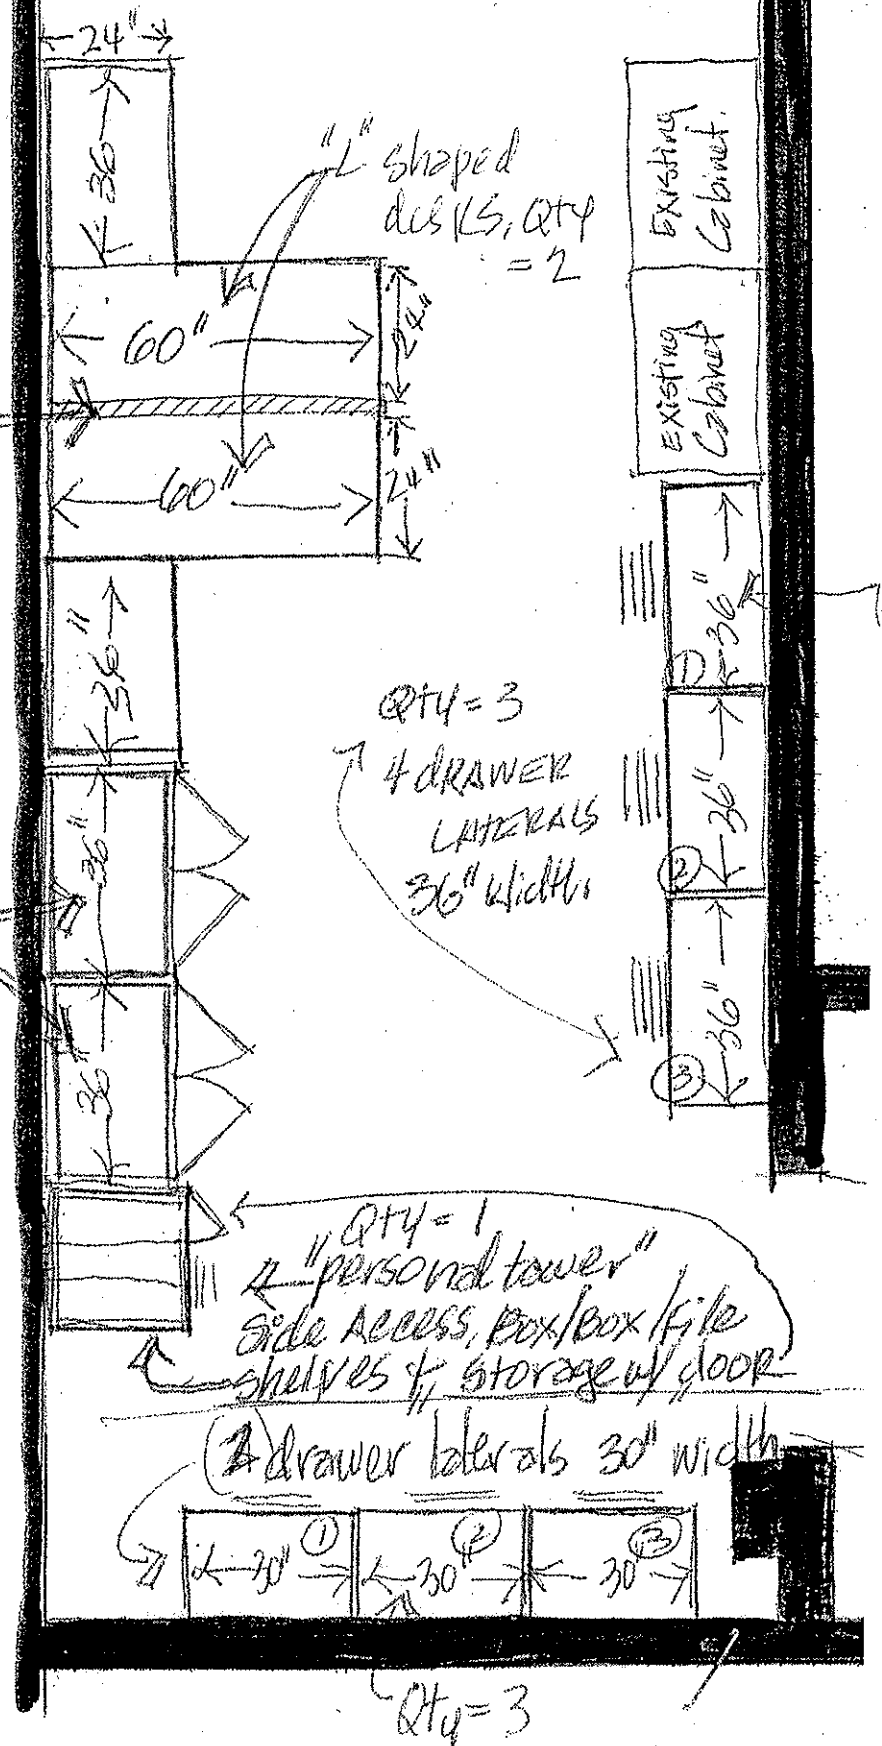 24"
36
"L" shaped
desks, Qty
= 2
Existing
Cabinet.
60"
24"
Existing
Cabinet
60"
24"
36"
36"
1
Qty = 3
4 dRAWER
LATERALS
36" Width.
36"
2
36"
36"
3
36"
Qty = 1
"personal tower"
Side Access, Box/Box/File
shelves & storage w/ door
drawer laterals 30" width
30"
1
30"
2
30"
3
Qty = 3